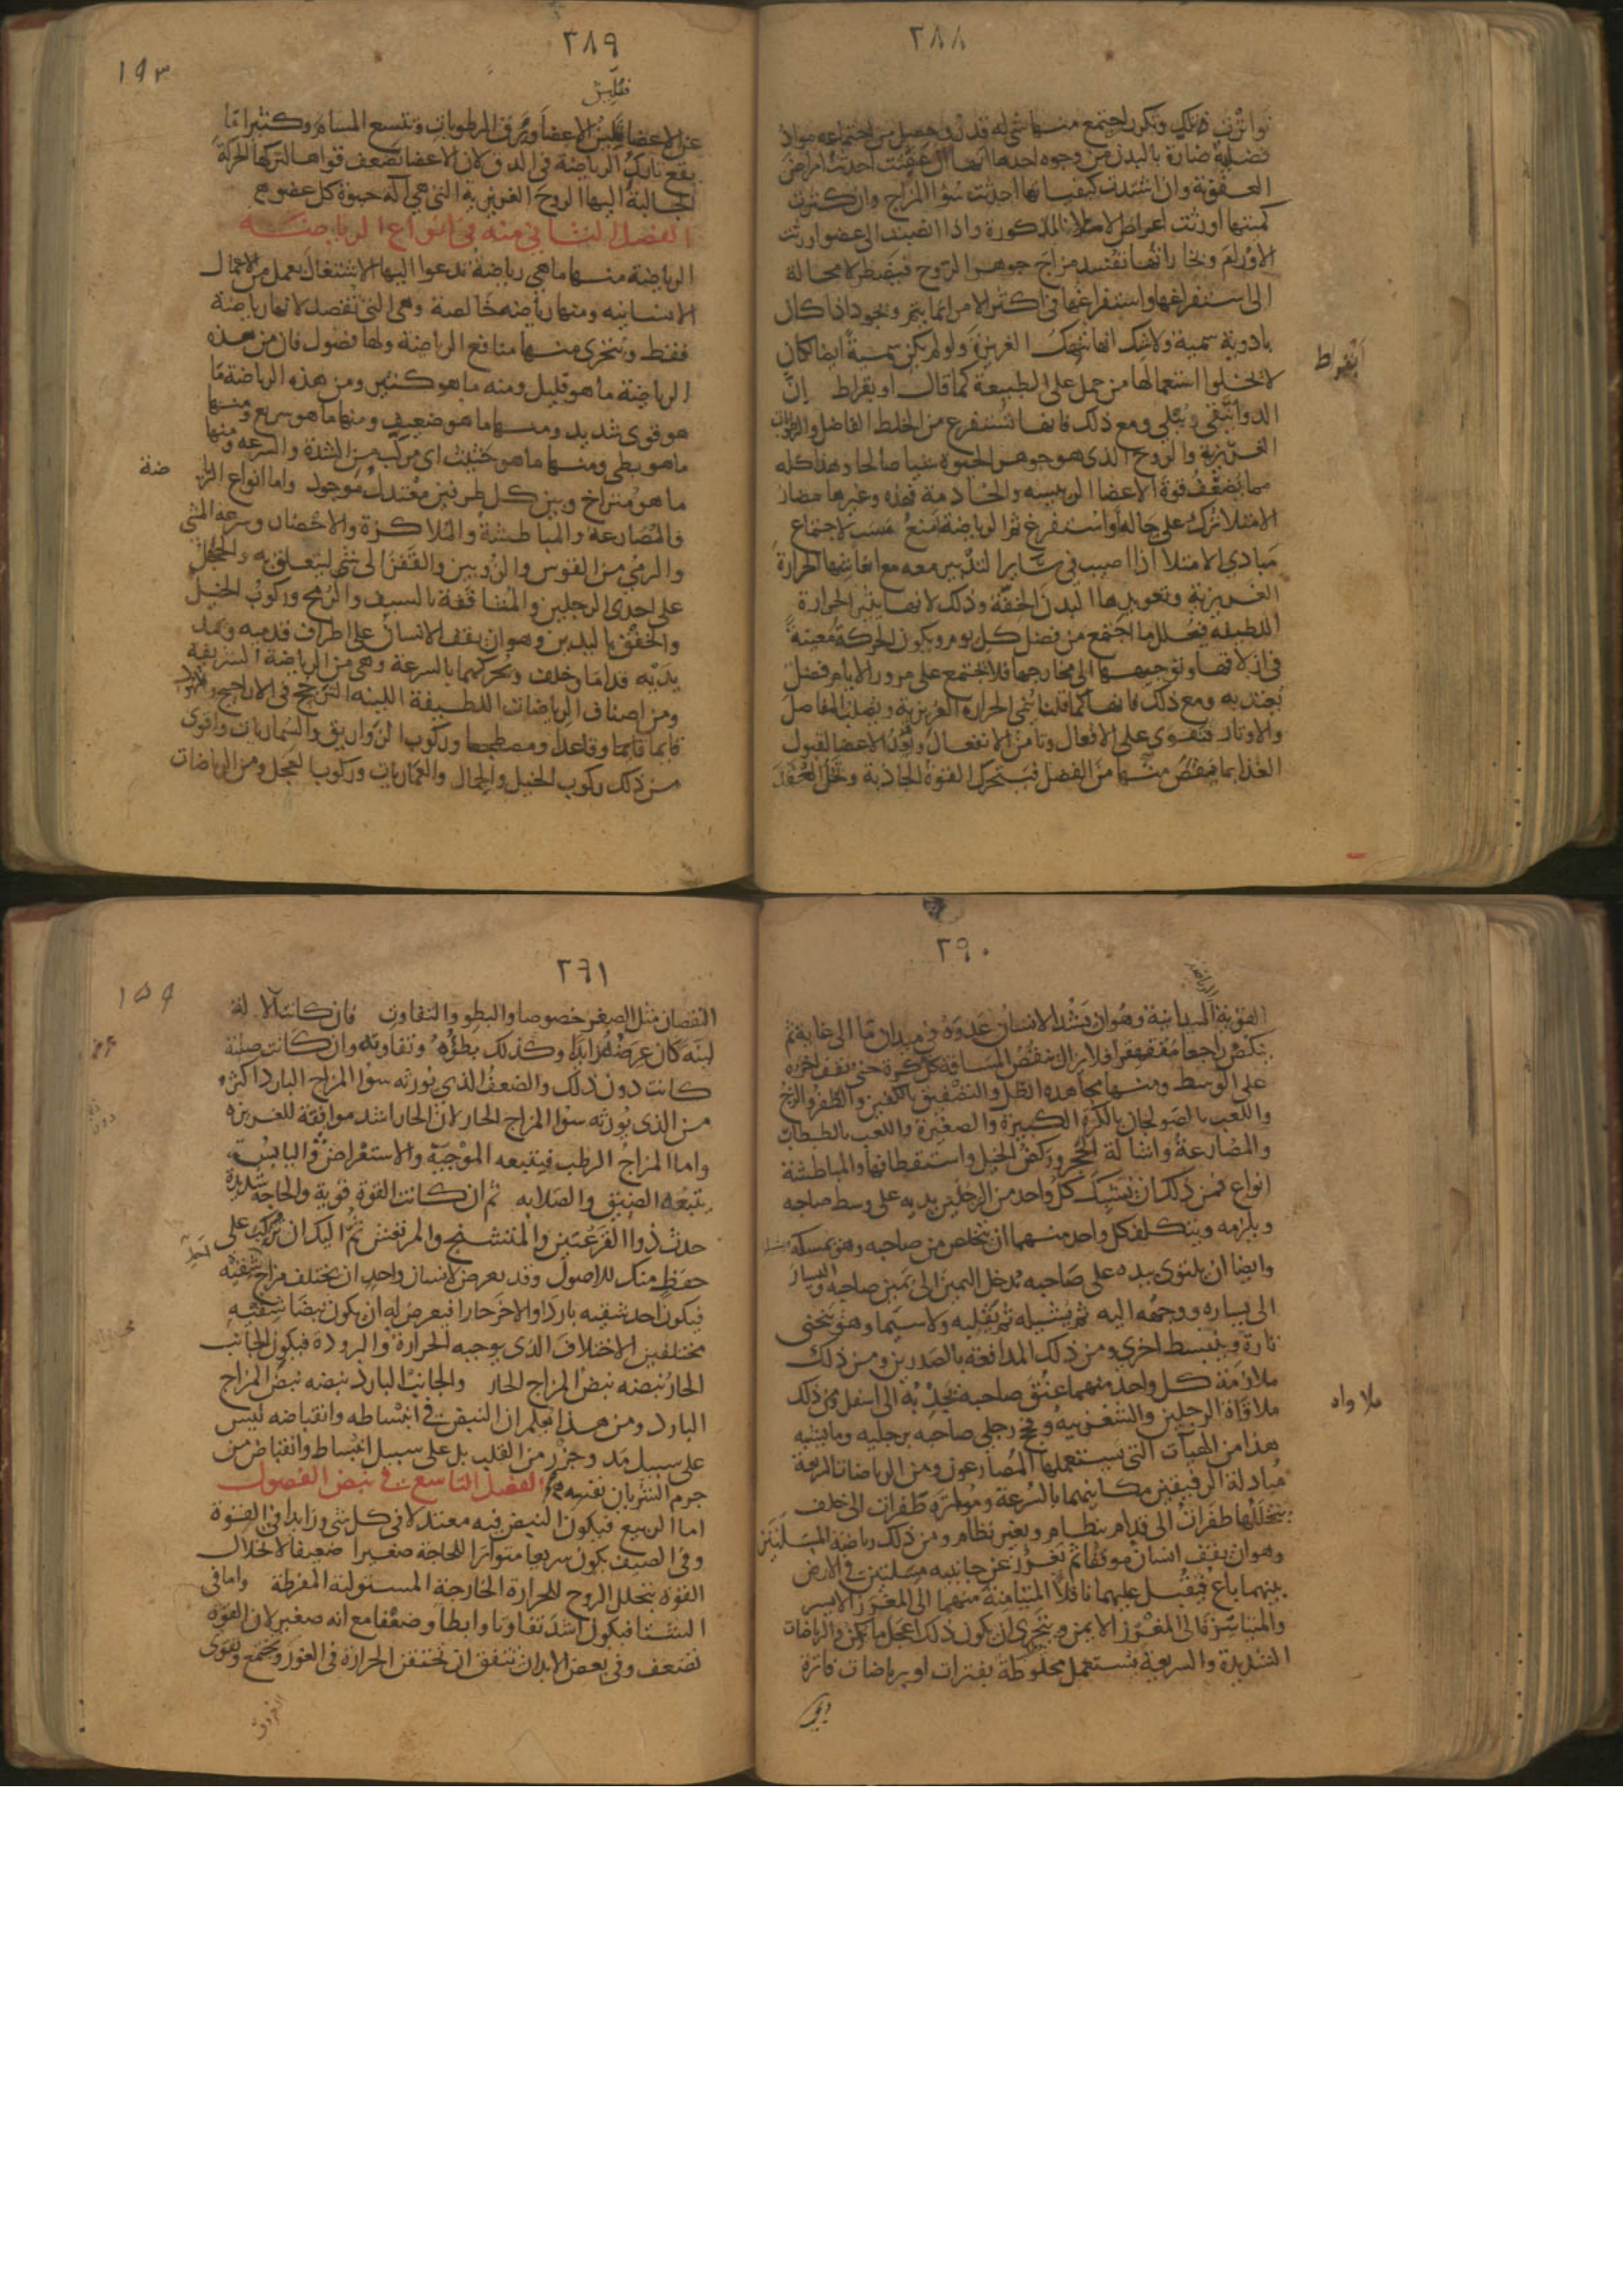 ٢٨٨
تواترت ذلك وتكرر اجتمع منها شى له قدر وحصل من اجتماعه مواد
فضلية ضارة بالبدن من وجوه احدها انها ان عفنت احدثت امراض
العفونة وان اشتدت كيفياتها احدثت سوء المزاج وان كثرت
كميتها اورثت امراض الامتلاء المذكورة واذا انصبت الى عضو اورثت
الاورام وبخاراتها تفسد مزاج جوهر الروح فيضطر لا محالة
الى استفراغها واستفراغها فى اكثر الامر انما يتم ويجود اذا كان
بادوية سمية ولا شك انها تنهك الغريزة ولو لم يكن سمية ايضا لكان
لا يخلوا استعمالها من حمل على الطبيعة كما قال ابقراط ان
ابقراط
الدوا ينقى وينكى ومع ذلك فانها تستفرغ من الخلط الفاضل والرطوبات
الغريزية والروح الذى هو جوهر الحيوة شيا صالحا وهذا كله
مما يضعف قوة الاعضا الرييسه والخادمة فهذه وغيرها مضار
الامتلا ترك على حاله او استفرغ ثم الرياضة امنع سبب لاجتماع
مبادى الامتلا اذا اصيب فى ساير التدبير معه مع انعاشها الحرارة
الغريزية وتعويدها البدن الخفة وذلك لانها يثير الحرارة
اللطيفه فيحلل ما اجتمع من فضل كل يوم ويكون الحركة معينة
فى ازلاقها وتوجيهها الى مخارجها فلا يجتمع على مرور الايام فضل
يعتد به ومع ذلك فانها كما قلنا ينمى الحرارة الغريزية ويصلب المفاصل
والاوتار فتقوى على الافعال وتامن الانفعال وتعد الاعضا لقبول
الغذا بما ينقص منها من الفضل فيتحرك القوة الجاذبة وتحل العقد
٢٨٩
١٩٣
فيلين
عن الاعضا فيلين الاعضا وترق الرطوبات وتتسع المسام وكثيرا ما
يقع تارك الرياضة فى الدق لان الاعضا تضعف قواها لتركها الحركة
الجالبة اليها الروح الغريزية التى هى الة حيوة كل عضو
الفصل الثانى منه فى انواع الرياضة
الرياضة منها ما هى رياضة تدعوا اليها الاشتغال بعمل من الاعمال
الانسانية ومنها رياضة خالصة وهى التى تقصد لانها رياضة
فقط ويتحرى منها منافع الرياضة ولها فصول فان من هذه
الرياضة ما هو قليل ومنه ما هو كثير ومن هذه الرياضة ما
هو قوى شديد ومنها ما هو ضعيف ومنها ما هو سريع ومنها
ما هو بطى ومنها ما هو حثيث اى مركب من الشدة والسرعة ومنها
ما هو متراخ وبين كل طرفين معتدل موجود واما انواع الريا ضة
فالمصارعة والمباطشة والملاكزة والاحضار وسرعة المشى
والرمى من القوس والزوبين والقفز الى شى ليتعلق به والحجل
على احدى الرجلين والمثاقفة بالسيف والرمح وركوب الخيل
والخفق باليدين وهو ان يقف الانسان على اطراف قدميه ويمد
يديه قدام وخلف ويحركهما بالسرعة وهى من الرياضة السريعة
ومن اصناف الرياضات اللطيفة اللينة الترجح فى الاراجيح والمهود
قايما وقاعدا ومضطجعا وركوب الزواريق والسماريات واقوى
من ذلك ركوب الخيل والجمال والعماريات وركوب العجل ومن الرياضات
٢٩٠
القوية الميدانية وهو ان يشد الانسان عدوه فى ميدان ما الى غاية ثم
ينكص راجعا مقهقرا فلا يزال ينقص المسافة كل كرة حتى يقف اخره
على الوسط ومنها مجاهدة الظل والتصفيق بالكفين والطفر والزج
واللعب بالصولجان بالكرة الكبيرة والصغيرة واللعب بالطبطاب
والمصارعة واشالة الحجر وركض الخيل واستقطافها والمباطشة
انواع فمن ذلك ان يشبك كل واحد من الرجلين يديه على وسط صاحبه
ويلزمه ويتكلف كل واحد منهما ان يتخلص من صاحبه وهو يمسكه
وايضا ان يلتوى بيده على صاحبه يدخل اليمين الى يمين صاحبه واليسار
الى يساره ووجهه اليه ثم يشيله ثم يقلبه ولا سيما وهو ينحنى
تارة وينبسط اخرى ومن ذلك المدافعة بالصدرين ومن ذلك
ملازمة كل واحد منهما عنق صاحبه يجذبه الى اسفل ومن ذلك
ملاواه
ملاقاة الرجلين والشغزبية وفحج رجلى صاحبه برجليه وما يشبه
هذا من الهيآت التى يستعملها المصارعون ومن الرياضات السريعة
مبادلة الرفيقين مكانيهما بالسرعة ومواترة طفرات الى خلف
يتخللها طفرات الى قدام بنظام وبغير نظام ومن ذلك رياضة المسلتين
وهو ان يقف انسان موقفا ثم يغرز عن جانبيه مسلتين فى الارض
بينهما باع فيقبل عليهما ناقلا المتيامنة منهما الى المغرز الايسر
والمتياسرة الى المغرز الايمن ويتحرى ان يكون ذلك اعجل ما يمكن والرياضات
الشديدة والسريعة تستعمل مخلوطة بفترات او برياضات فاترة
٢٩١
١٥٩
النقصان مثل الصغر خصوصا والبطو والتفاوت فان كانت الالة
لينة كان عرضه زايدا وكذلك بطؤه وتفاوته وان كانت صلبة
كانت دون ذلك والضعف الذى يورثه سوء المزاج البارد اكثر
من الذى يورثه سوء المزاج الحار لان الحار اشد موافقة للغريزة
واما المزاج الرطب فيتبعه الموجية والاستعراض واليابس
يتبعه الضيق والصلابه ثم ان كانت القوة قوية والحاجة شديدة
حدث ذوا القرعتين والمتشنج والمرتعش ثم اليك ان تركب على
حفظ منك للاصول وقد يعرض لانسان واحد ان يختلف مزاج شقيه
فيكون احد شقيه باردا والاخر حارا فيعرض له ان يكون نبضا شقيه
مختلفين الاختلاف الذى يوجبه الحرارة والبرودة فيكون الجانب
الحار نبضه نبض المزاج الحار والجانب البارد نبضه نبض المزاج
البارد ومن هذا يعلم ان النبض فى انبساطه وانقباضه ليس
على سبيل مد وجزر من القلب بل على سبيل انبساط وانقباض من
جرم الشريان نفسه الفصل التاسع فى نبض الفصول
اما الربيع فيكون النبض فيه معتدلا فى كل شى وزايدا فى القوة
وفى الصيف يكون سريعا متواترا للحاجة صغيرا ضعيفا لانحلال
القوة بتحلل الروح للحرارة الخارجة المستولية المفرطة واما فى
الشتا فيكون اشد تفاوتا وابطأ وضعفا مع انه صغير لان القوة
تضعف وفى بعض الابدان يتفق ان تحتقن الحرارة فى الغور وتجتمع وتقوى